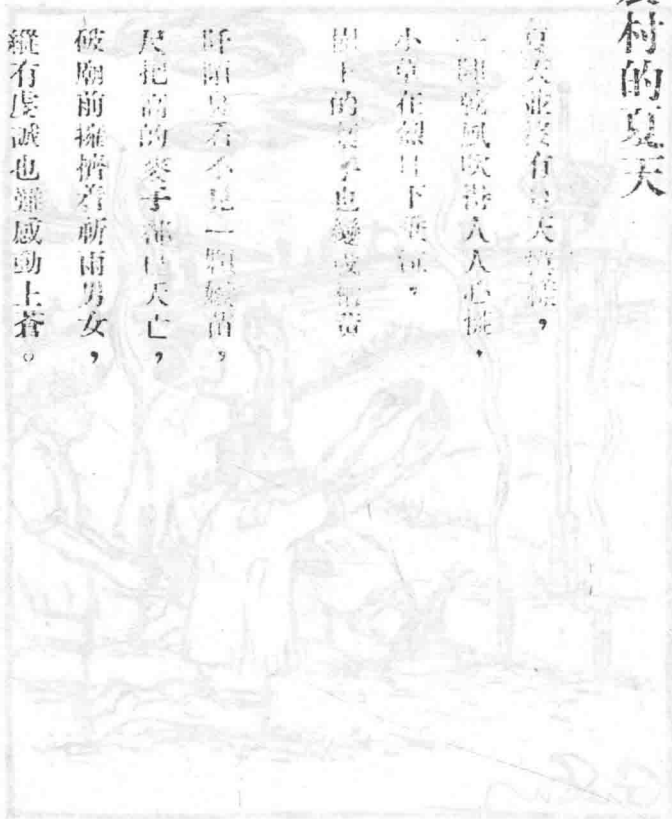 村的夏天
夏天並沒有夏天模樣，
乾風吹得人人心慌，
小草在烈日下
樹上的葉子也變成枯黃
阡陌見看不見一顆綠苗，
尺把高的麥子都已夭亡，
破廟前擁擠着祈雨男女，
縱有虔誠也難感動上蒼。